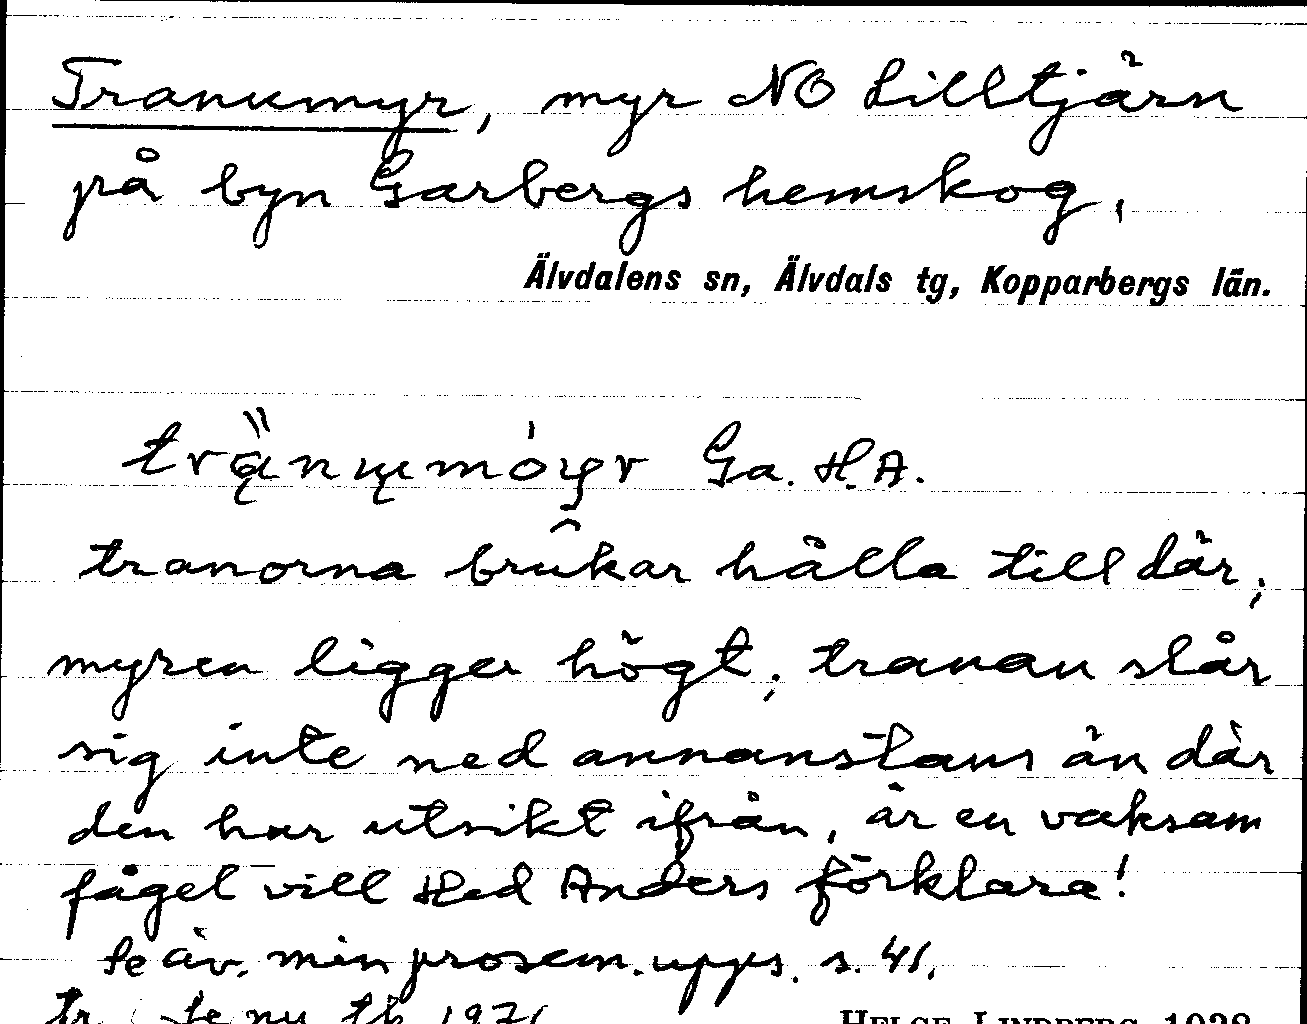 Tranumyr, myr NO Lilltjärn
på byn Garbergs hemskog,
Älvdalens sn, Älvdals tg, Kopparbergs län.
Ga. H.A.
tranorna brukar hålla till där;
myren ligger högt; tranan slår
sig inte ned annanstans än där
den har utsikt ifrån, är en vaksam
fågel vill Hed Anders förklara!
Se äv. min prosem.upps. s. 41.
HELGE LINDBERG 1938